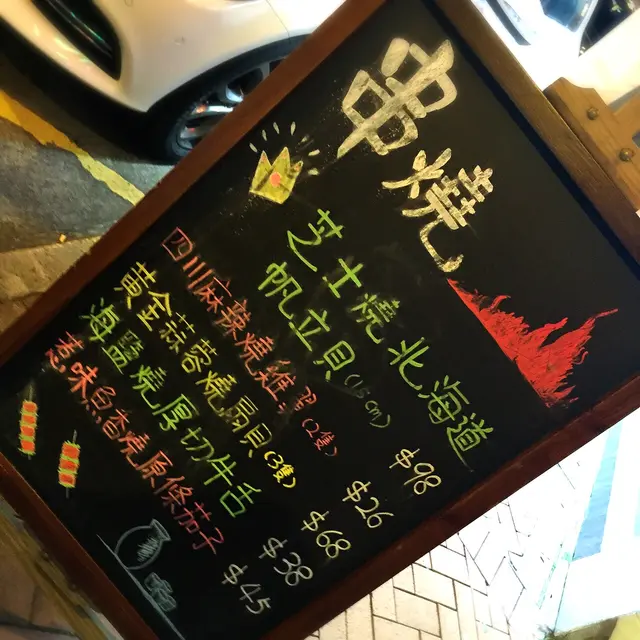 串燒
芝士燒北海道
帆立貝(15cm) $98
四川麻辣燒雞翼(2隻) $26
黃金蒜蓉燒扇貝(3隻) $68
海鹽燒厚切牛舌 $38
惹味魚香燒原條茄子 $45